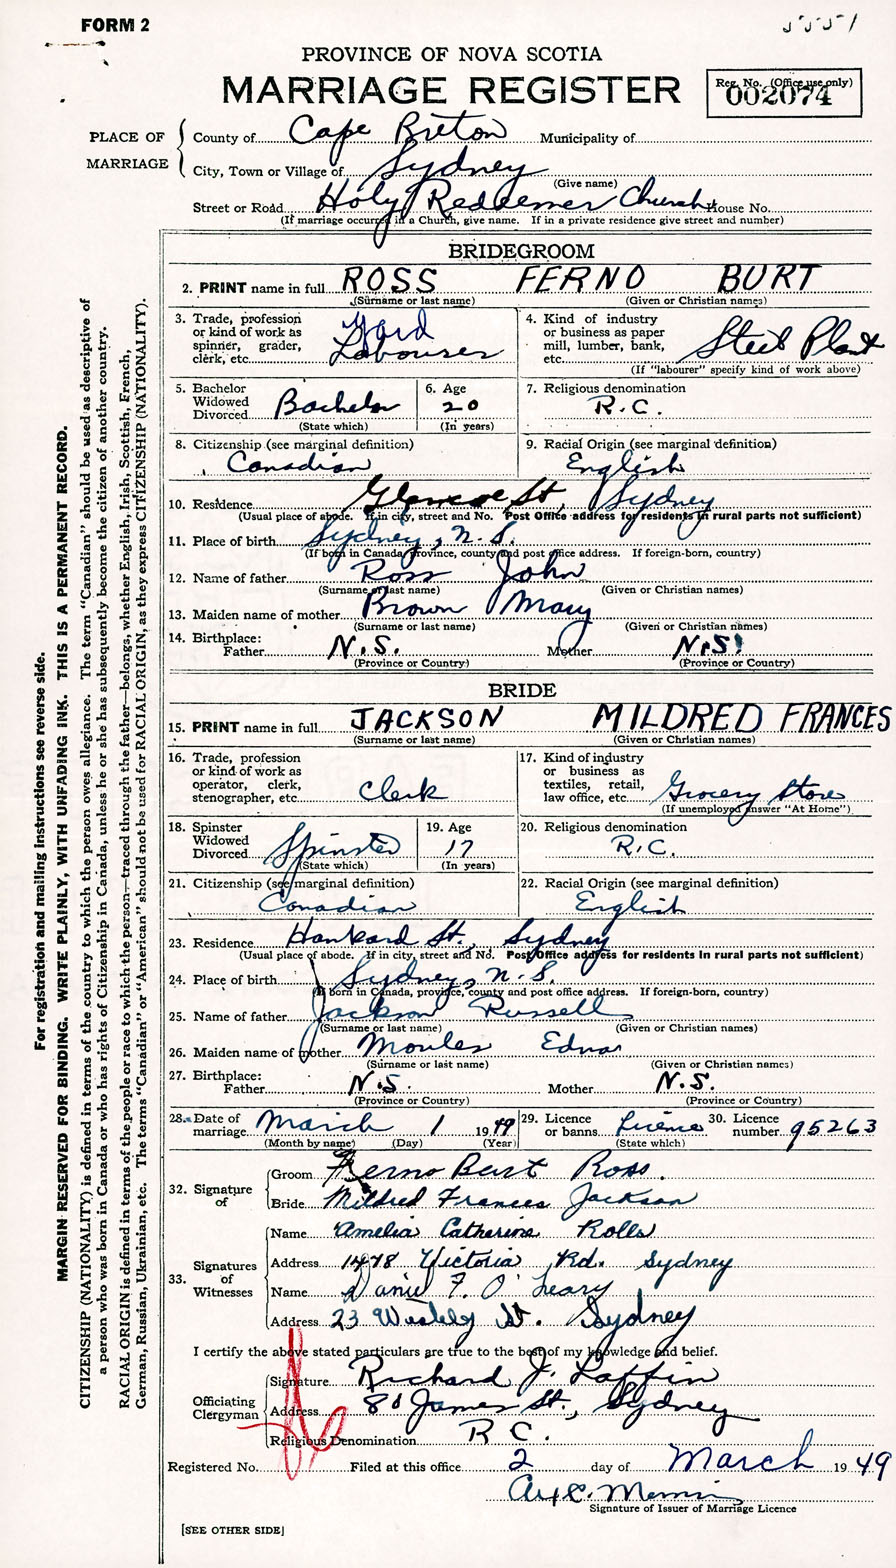 FORM 2
5551
PROVINCE OF NOVA SCOTIA
MARRIAGE REGISTER
Reg. No. (Office use only)
002074
PLACE OF MARRIAGE
County of Cape Breton Municipality of
City, Town or Village of Sydney
(Give name)
Street or Road Holy Redeemer Church House No.
(If marriage occurred in a Church, give name. If in a private residence give street and number)
BRIDEGROOM
2. PRINT name in full ROSS FERNO BURT
(Surname or last name) (Given or Christian names)
3. Trade, profession or kind of work as spinner, grader, clerk, etc. Yard Labourer
4. Kind of industry or business as paper mill, lumber, bank, etc. Steel Plant
(If "labourer" specify kind of work above)
5. Bachelor Widowed Divorced Bachelor
(State which)
6. Age 20
(In years)
7. Religious denomination R.C.
8. Citizenship (see marginal definition) Canadian
9. Racial Origin (see marginal definition) English
10. Residence Glencoe St, Sydney
(Usual place of abode. If in city, street and No. Post Office address for residents in rural parts not sufficient)
11. Place of birth Sydney, N.S.
(If born in Canada, province, county and post office address. If foreign-born, country)
12. Name of father Ross John
(Surname or last name) (Given or Christian names)
13. Maiden name of mother Brown Mary
(Surname or last name) (Given or Christian names)
14. Birthplace:
Father N.S. Mother N.S.
(Province or Country) (Province or Country)
BRIDE
15. PRINT name in full JACKSON MILDRED FRANCES
(Surname or last name) (Given or Christian names)
16. Trade, profession or kind of work as operator, clerk, stenographer, etc. Clerk
17. Kind of industry or business as textiles, retail, law office, etc. Grocery Store
(If unemployed answer "At Home")
18. Spinster Widowed Divorced Spinster
(State which)
19. Age 17
(In years)
20. Religious denomination R.C.
21. Citizenship (see marginal definition) Canadian
22. Racial Origin (see marginal definition) English
23. Residence Hankard St., Sydney
(Usual place of abode. If in city, street and No. Post Office address for residents in rural parts not sufficient)
24. Place of birth Sydney, N.S.
(If born in Canada, province, county and post office address. If foreign-born, country)
25. Name of father Jackson Russell
(Surname or last name) (Given or Christian names)
26. Maiden name of mother Moules Edna
(Surname or last name) (Given or Christian names)
27. Birthplace:
Father N.S. Mother N.S.
(Province or Country) (Province or Country)
28. Date of marriage March 1 1949
(Month by name) (Day) (Year)
29. Licence or banns License
(State which)
30. Licence number 95263
32. Signature of
Groom Ferno Burt Ross.
Bride Mildred Frances Jackson
33. Signatures of Witnesses
Name Amelia Catherine Rolls
Address 1478 Victoria Rd. Sydney
Name Daniel F. O'Leary
Address 23 St. Sydney
I certify the above stated particulars are true to the best of my knowledge and belief.
Officiating Clergyman
Signature Richard J. Laffin
Address 80 James St., Sydney
Religious Denomination R C.
Registered No. Filed at this office 2 day of March 1949
Signature of Issuer of Marriage Licence
[SEE OTHER SIDE]
For registration and mailing instructions see reverse side.
MARGIN RESERVED FOR BINDING. WRITE PLAINLY, WITH UNFADING INK. THIS IS A PERMANENT RECORD.
CITIZENSHIP (NATIONALITY) is defined in terms of the country to which the person owes allegiance. The term "Canadian" should be used as descriptive of
a person who was born in Canada or who has rights of Citizenship in Canada, unless he or she has subsequently become the citizen of another country.
RACIAL ORIGIN is defined in terms of the people or race to which the person—traced through the father—belongs, whether English, Irish, Scottish, French,
German, Russian, Ukrainian, etc. The terms "Canadian" or "American" should not be used for RACIAL ORIGIN, as they express CITIZENSHIP (NATIONALITY).